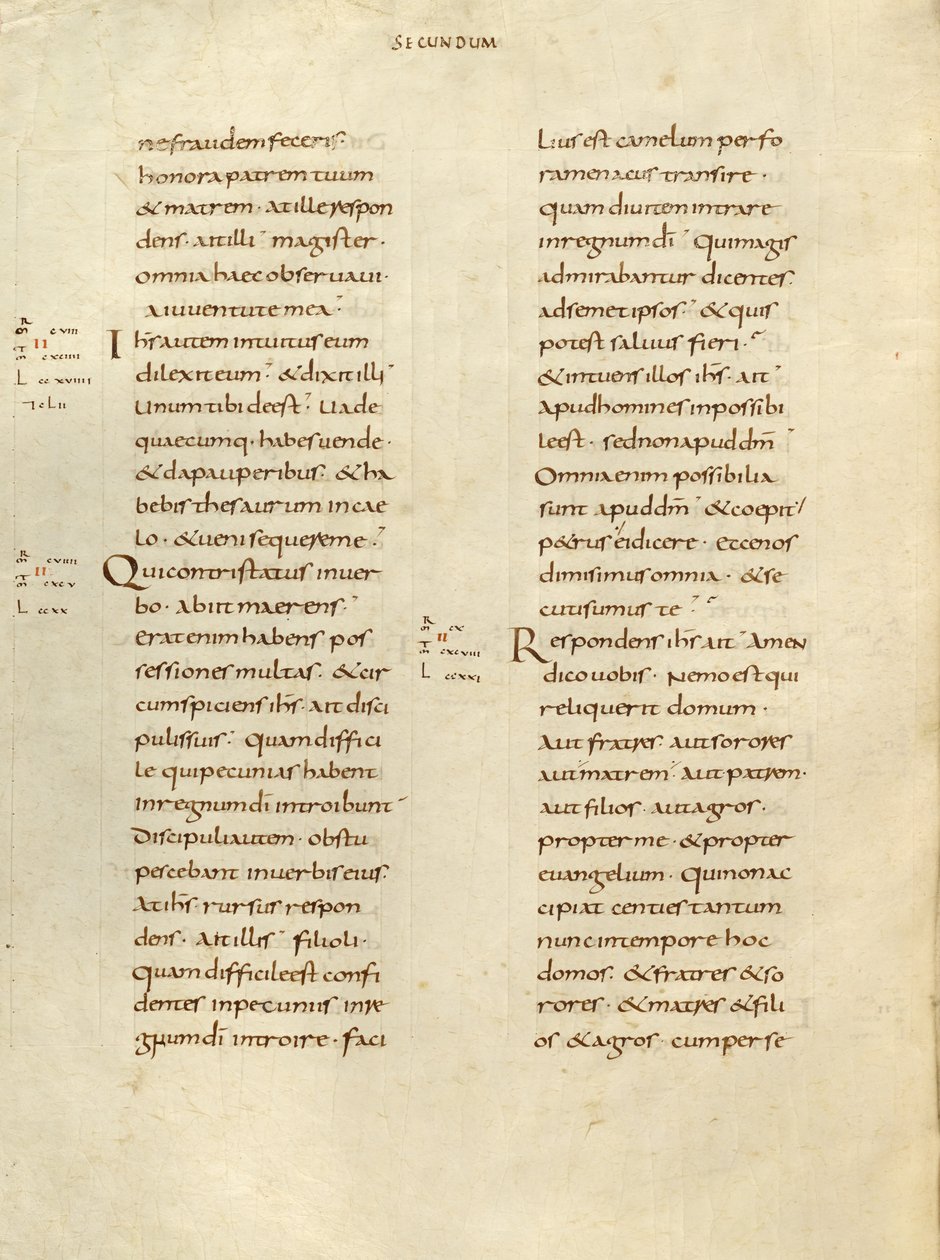 SECUNDUM
ne fraudem feceris·
honora patrem tuum
& matrem· At ille respon
dens· ait illi magister·
omnia haec observavi·
a iuventute mea
R
m cviii
II
m cxciiii
L ccxviiii
Ihs autem intuitus eum
dilexit eum· & dixit illi
Unum tibi deest Uade
quaecumq· habes uende·
& da pauperibus· & ha
bebis thesaurum in cae
lo· & ueni sequere me
R
m cviiii
II
m cxcv
L ccxx
Qui contristatus in uer
bo· Abiit maerens·
erat enim habens pos
sessiones multas· & cir
cumspiciens ihs· ait disci
pulis suis· Quam diffici
le qui pecunias habent
in regnum di introibunt
Discipuli autem· obstu
pescebant in uerbis eius·
At ihs· rursus respon
dens· Ait illis filioli·
Quam difficile est confi
dentes in pecuniis in re
gnum di introire· faci
lius est camelum per fo
ramen acus transire·
quam diuitem intrare
in regnum di Qui magis
admirabantur dicentes·
ad semet ipsos· & quis
potest saluus fieri·
& intuens illos ihs· ait
Apud homines inpossibi
le est· sed non apud dm
Omnia enim possibilia
sunt apud dm & coepit
p&rus ei dicere· Ecce nos
dimisimus omnia· & se
cuti sumus te
R
m cx
II
m cxcviii
L ccxxi
Respondens ihs ait Amen
dico uobis· Nemo est qui
reliquerit domum·
Aut fratres· aut sorores
aut matrem· Aut patrem·
aut filios· aut agros·
propter me· & propter
euangelium· Qui non ac
cipiat centies tantum
nunc in tempore hoc
domos· & fratres & so
rores· & matres & fili
os & agros· cum perse